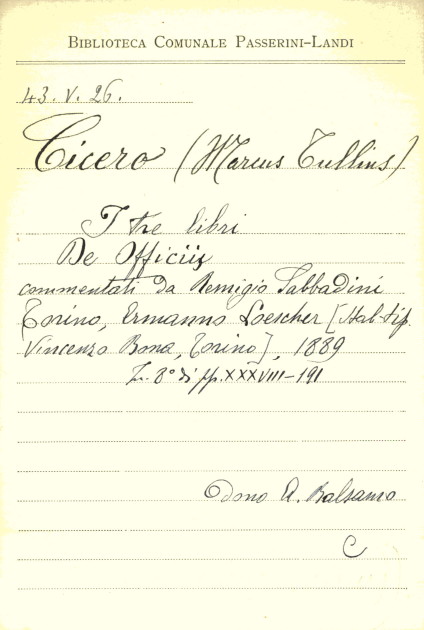 BIBLIOTECA COMUNALE PASSERINI-LANDI
43. V. 26.
Cicero (Marcus Tullius)
I tre libri
De Officiis
commentati da Remigio Sabbadini
Torino, Ermanno Loescher [Stab. tip.
Vincenzo Bona, Torino], 1889
In 8° di pp. XXXVIII-191
Dono A. Balsamo
C